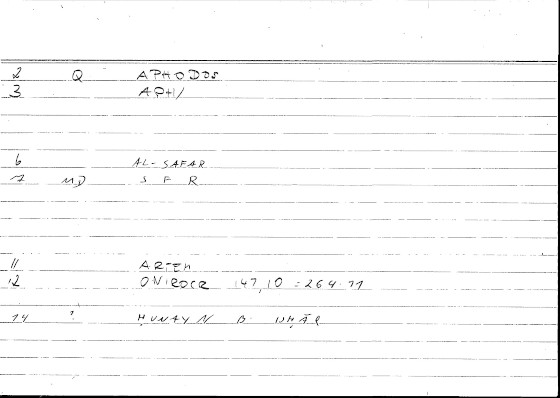 2 Q APHODOS
3 APH/
6 AL-SAFAR
7 MD S F R
11 ARTEM
12 ONIROCR 147,10 = 264.11
14 ? ḤUNAYN B. ISḤĀQ